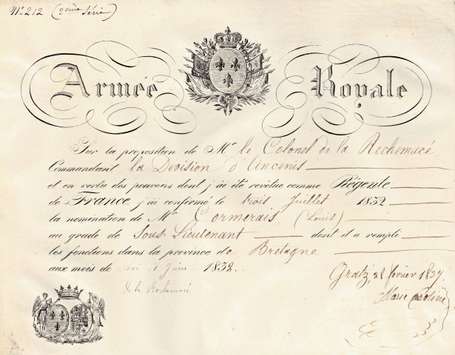 N° 212 (2ème Série)
Armée Royale
Sur la proposition de Mr. le Colonel de la Rochemacé
Commandant la Division d'Ancenis
et en vertu des pouvoirs dont j'ai été revêtue comme Régente
de France, j'ai confirmé le trois Juillet 1832
la nomination de Mr Cormerais (Louis)
au grade de Sous Lieutenant dont il a rempli
les fonctions dans la province de Bretagne
aux mois de Juin 1832.
Gratz, février 1837
Marie Caroline
de la Rochemacé